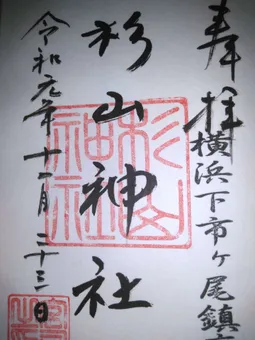 奉拝
横浜下市ヶ尾鎮
杉山神社
令和元年十一月二十三日
杉山神社